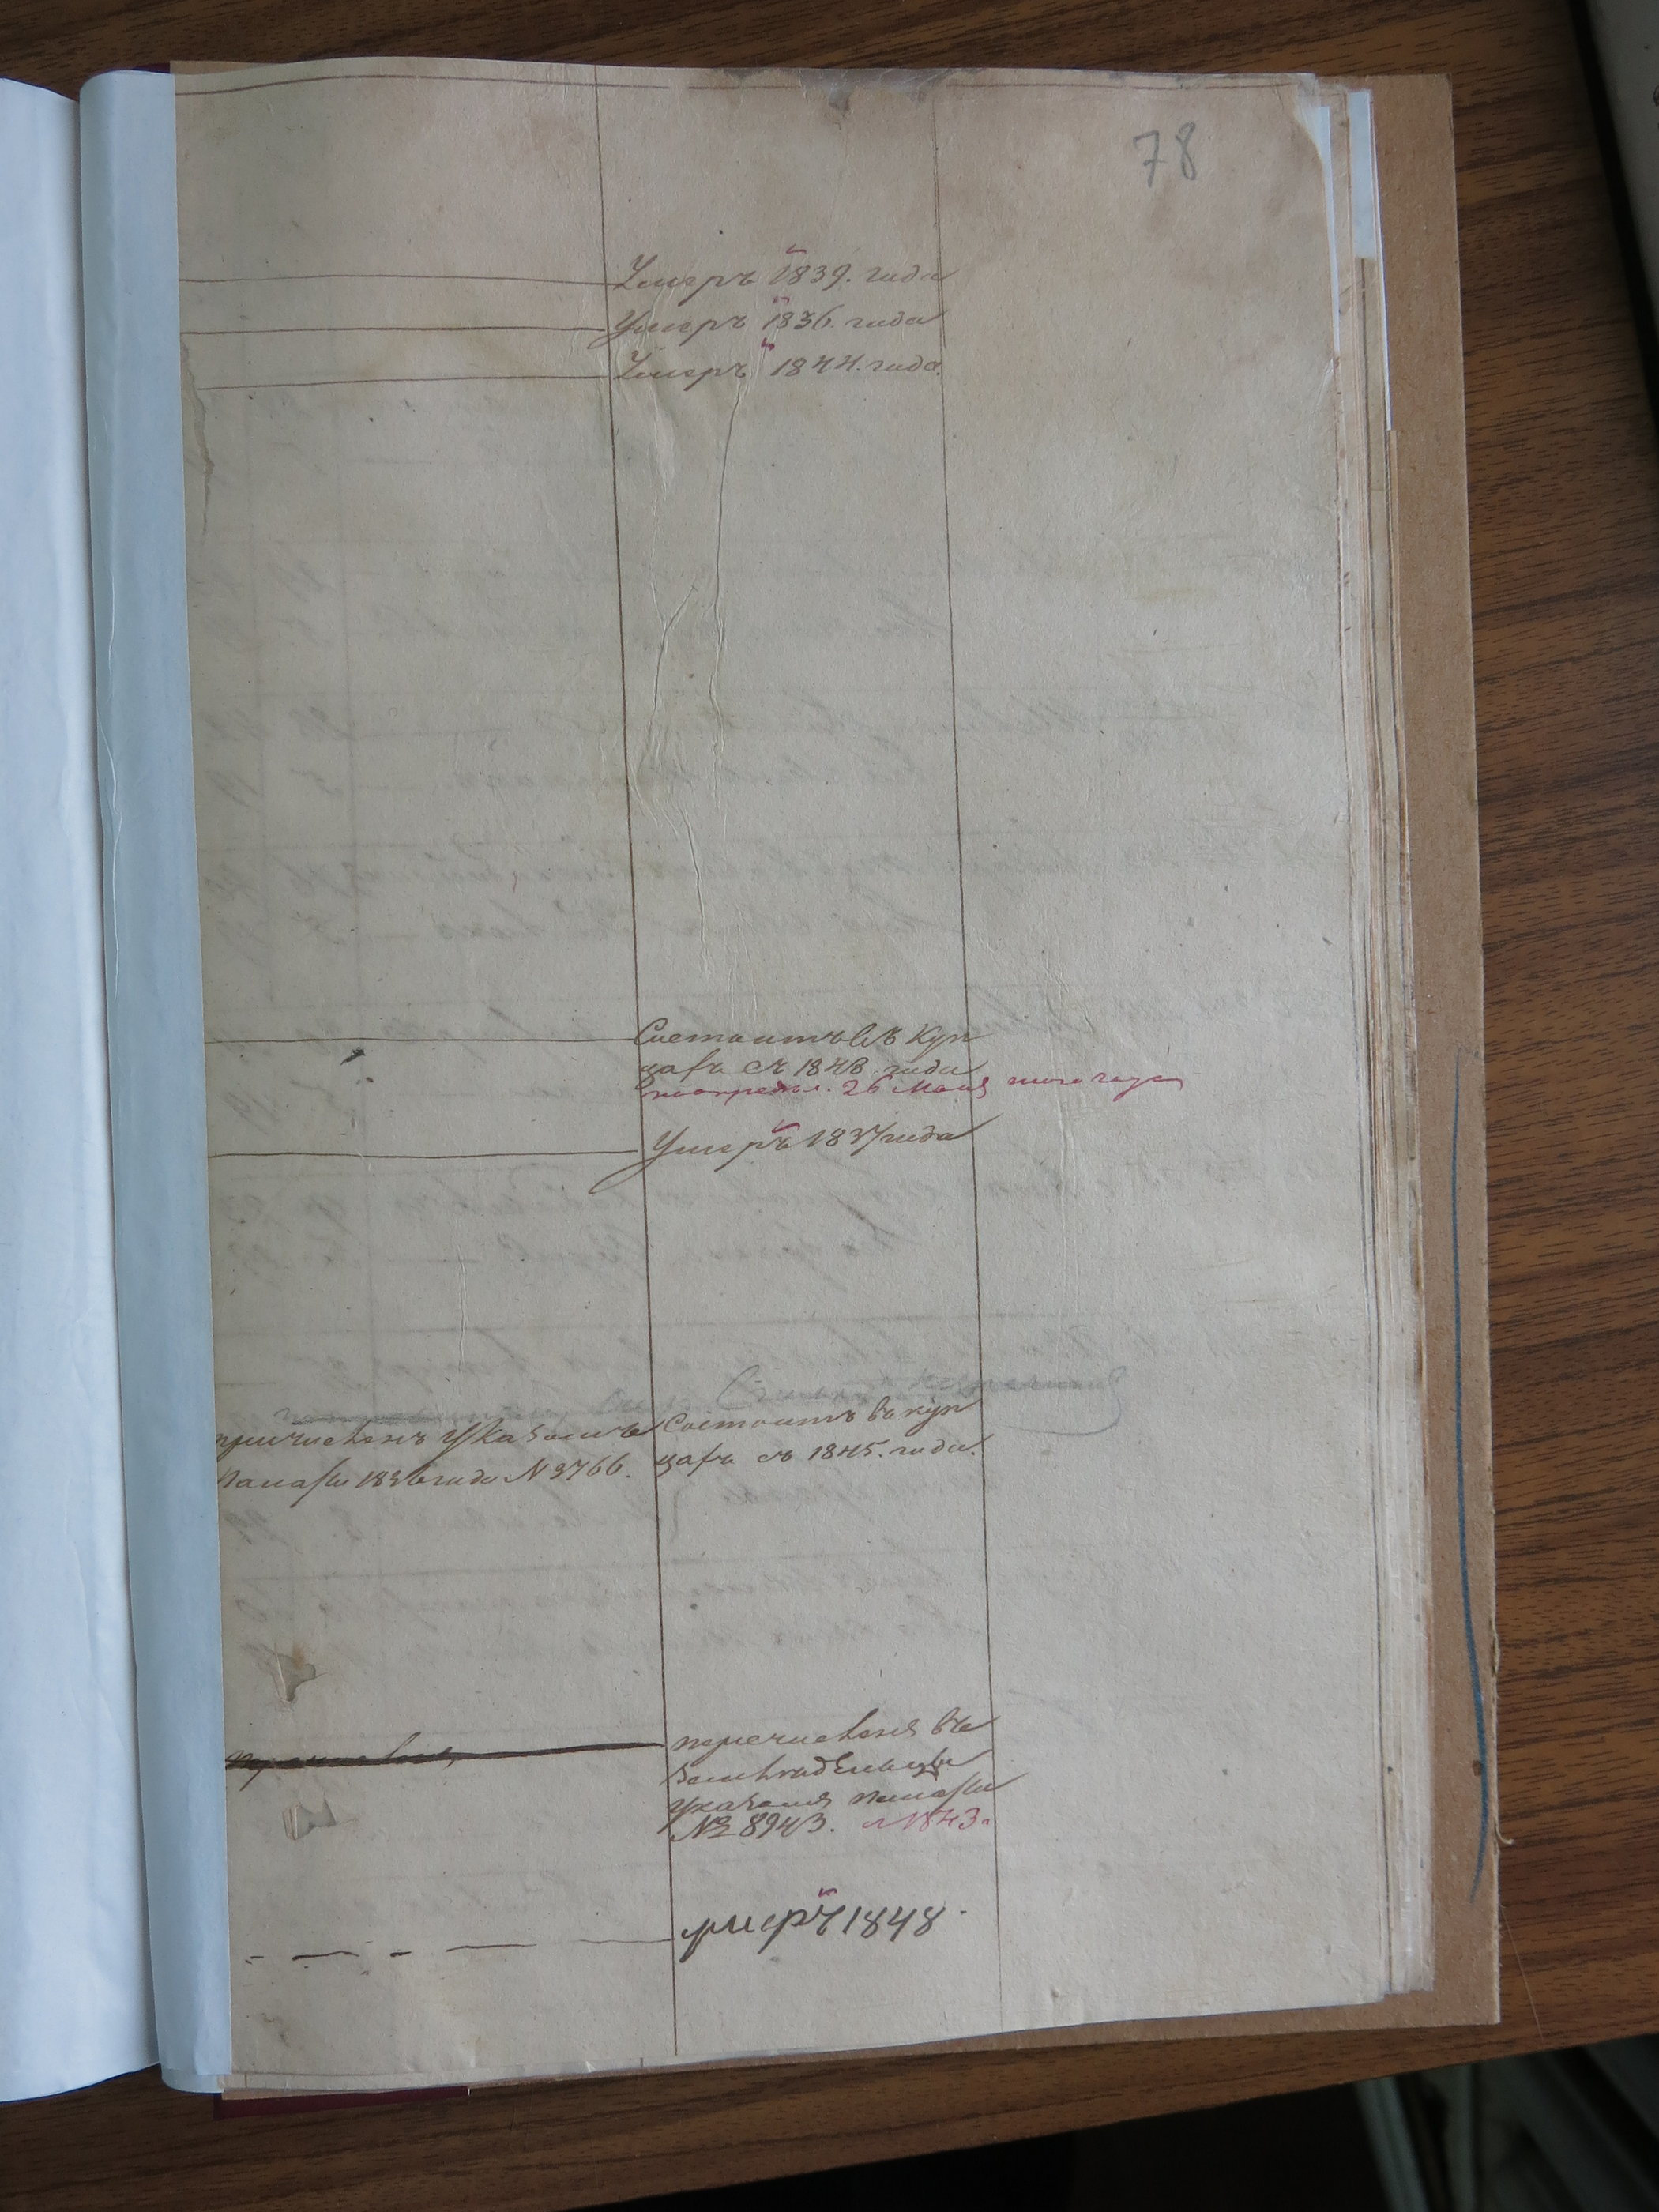 78
Умеръ 1839. года
Умеръ 1836. года
Умеръ 1844. года.
Состоитъ въ куп
цахъ съ 1848 года
26 Мая того года
Умеръ 1837 года
причисленъ Указомъ
Палаты 1836 года N 3766.
Состоитъ въ куп
цахъ съ 1845. года.
перечисленъ въ
указомъ палаты
№ 8943. 1843.
умеръ 1848.